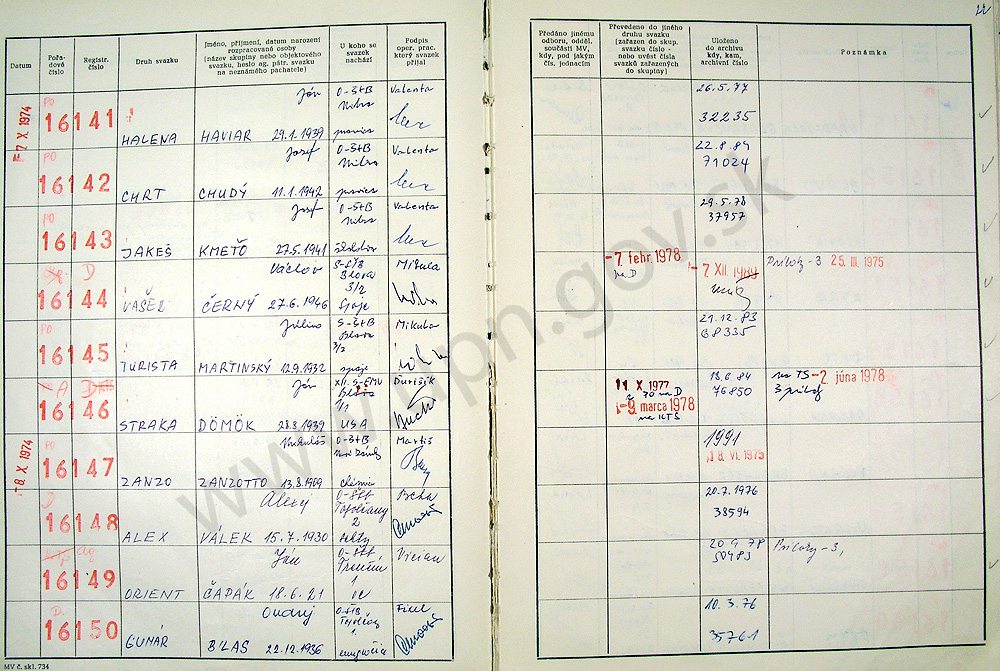 22
Datum
Pořadové číslo
Registr. číslo
Druh svazku
Jméno, příjmení, datum narození
rozpracované osoby
(název skupiny nebo objektového
svazku, heslo ag. pátr. svazku
na neznámého pachatele)
U koho se
svazek
nachází
Podpis
oper. prac.
který svazek
přijal
Předáno jinému
odboru, odděl.
součásti MV,
kdy, pod jakým
čís. jednacím
Převedeno do jiného
druhu svazku
(zařazen do skup.
svazku číslo -
nebo uvést čísla
svazků zařazených
do skupiny)
Uloženo
do archivu
kdy, kam,
archivní číslo
Poznámka
7 X. 1974
PO
16141
HALENA HAVIAR 29.1.1939
Ján
O-ŠtB
Nitra
Valenta
26.5.77
32235
PO
16142
CHRT CHUDÝ 11.1.1942
Jozef
O-ŠtB
Nitra
Valenta
22.8.84
71024
PO
16143
JAKEŠ KMEŤO 27.5.1941
Jozef
O-ŠtB
Nitra
Valenta
29.5.78
37957
D
16144
ČERNÝ 27.6.1946
Václav
3/2
-7 febr. 1978
na D
-7 XII. 1989
Prílohy - 3 25. III. 1975
PO
16145
TURISTA MARTINSKÝ 12.9.1932
Július
S-ŠtB
3/2
spoje
Mikula
21.12.83
68335
A
16146
STRAKA DÖMÖK 28.8.1939
Ján
USA
Ďurišik
11 X 1977
-9. marca 1978
na KTS
18.6.84
76850
na TS -2. júna 1978
3 príloh
-8. X. 1974
PO
16147
ZANZO ZANZOTTO
O-ŠtB
Nové Zámky
chémia
Martiš
1991
18. VI. 1975
D
16148
ALEX VÁLEK 15.7.1930
Alexej
O-ŠtB
Topoľčany
2
sekty
20.7.1976
38594
16149
ORIENT ČAPÁK 18.6.21
Ján
O-ŠtB,
Trenčín
1
Vician
20 9 78
50483
Prílohy - 3,
D.
16150
GUNÁR BLAS 22.12.1936
Ondrej
O-ŠtB
1.
emigrácia
10.3.76
35761
MV č. skl. 734
www.upn.gov.sk